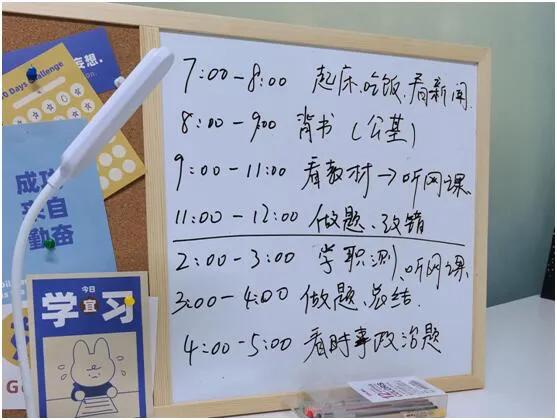 7:00-8:00 起床、吃饭、看新闻
8:00-9:00 背书（公基）
9:00-11:00 看教材→听网课
11:00-12:00 做题、改错
2:00-3:00 学职测、听网课
3:00-4:00 做题、总结
4:00-5:00 看时事政治题
妄想.
0 Days Challenge
成功
来自
勤奋
今日
学宜习